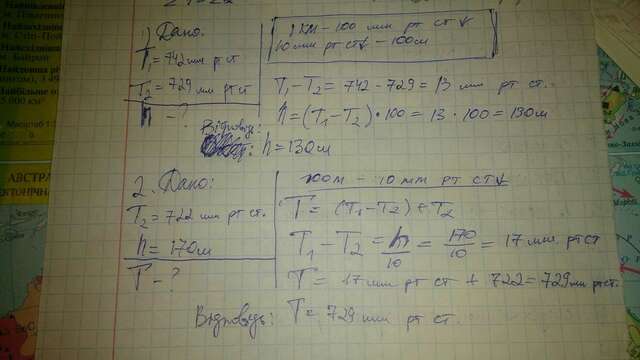 1) Дано:
T₁ = 742 мм рт ст
T₂ = 729 мм рт ст
h - ?
1 км - 100 мм рт ст ↓
10 мм рт ст ↓ - 100 м
T₁ - T₂ = 742 - 729 = 13 мм рт ст.
h = (T₁ - T₂) • 100 = 13 • 100 = 130 м
Відповідь:
h = 130 м
2. Дано:
T₂ = 722 мм рт ст.
h = 170 м
T - ?
100 м - 10 мм рт ст ↓
T = (T₁ - T₂) + T₂
T₁ - T₂ = h/10 = 170/10 = 17 мм. рт ст
T = 17 мм рт ст + 722 = 729 мм рт ст.
Відповідь: T = 729 мм рт ст.
АВСТРА